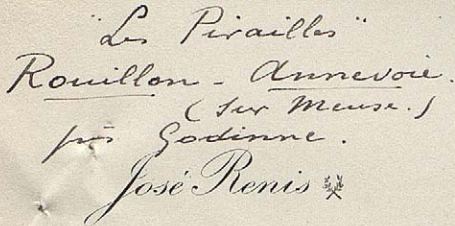 "Les Pirailles"
Rouillon - Annevoie.
(sur Meuse.)
près Godinne.
José Renis